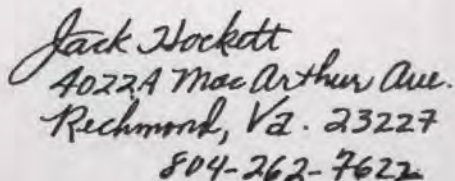 Jack Hockett
4022A MacArthur Ave.
Richmond, Va. 23227
804-262-7622